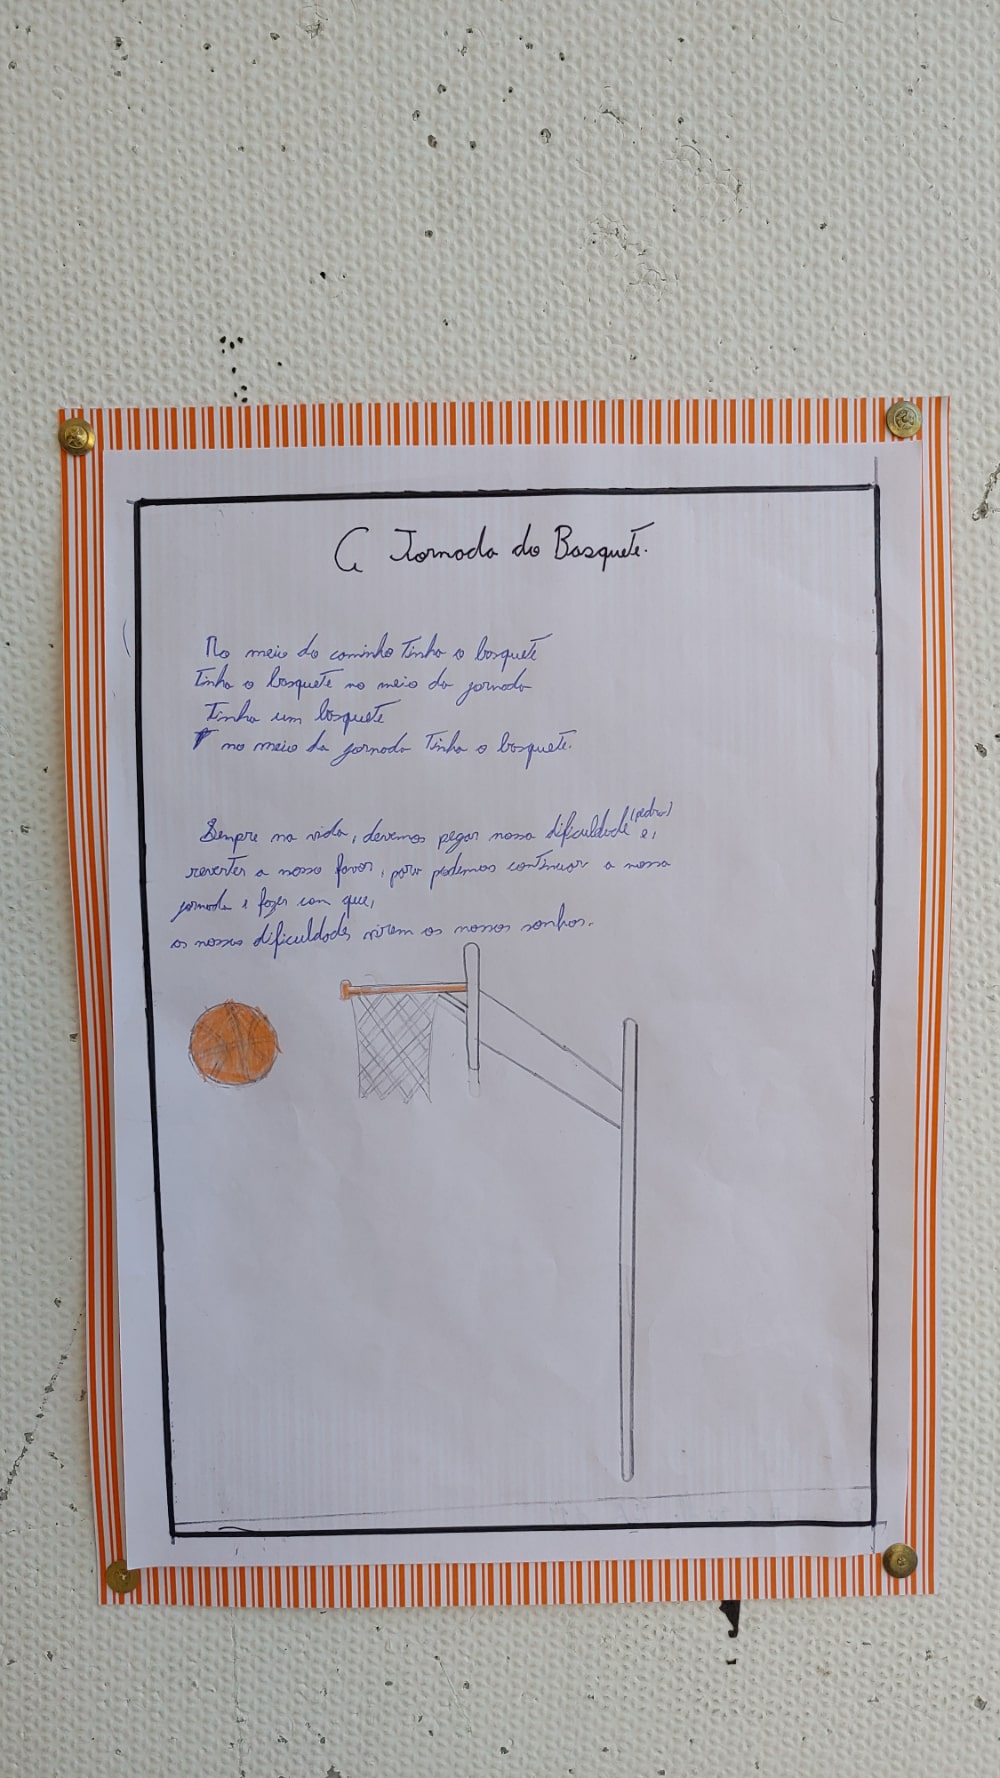 A Jornada do Basquete.
No meio do caminho tinha o basquete
Tinha o basquete no meio da jornada
Tinha um basquete
no meio da jornada tinha o basquete.
Sempre na vida, devemos pegar nossa dificuldade (pedra) e,
reverter a nosso favor, para podemos continuar a nossa
jornada e fazer com que,
as nossas dificuldades virem os nossos sonhos.